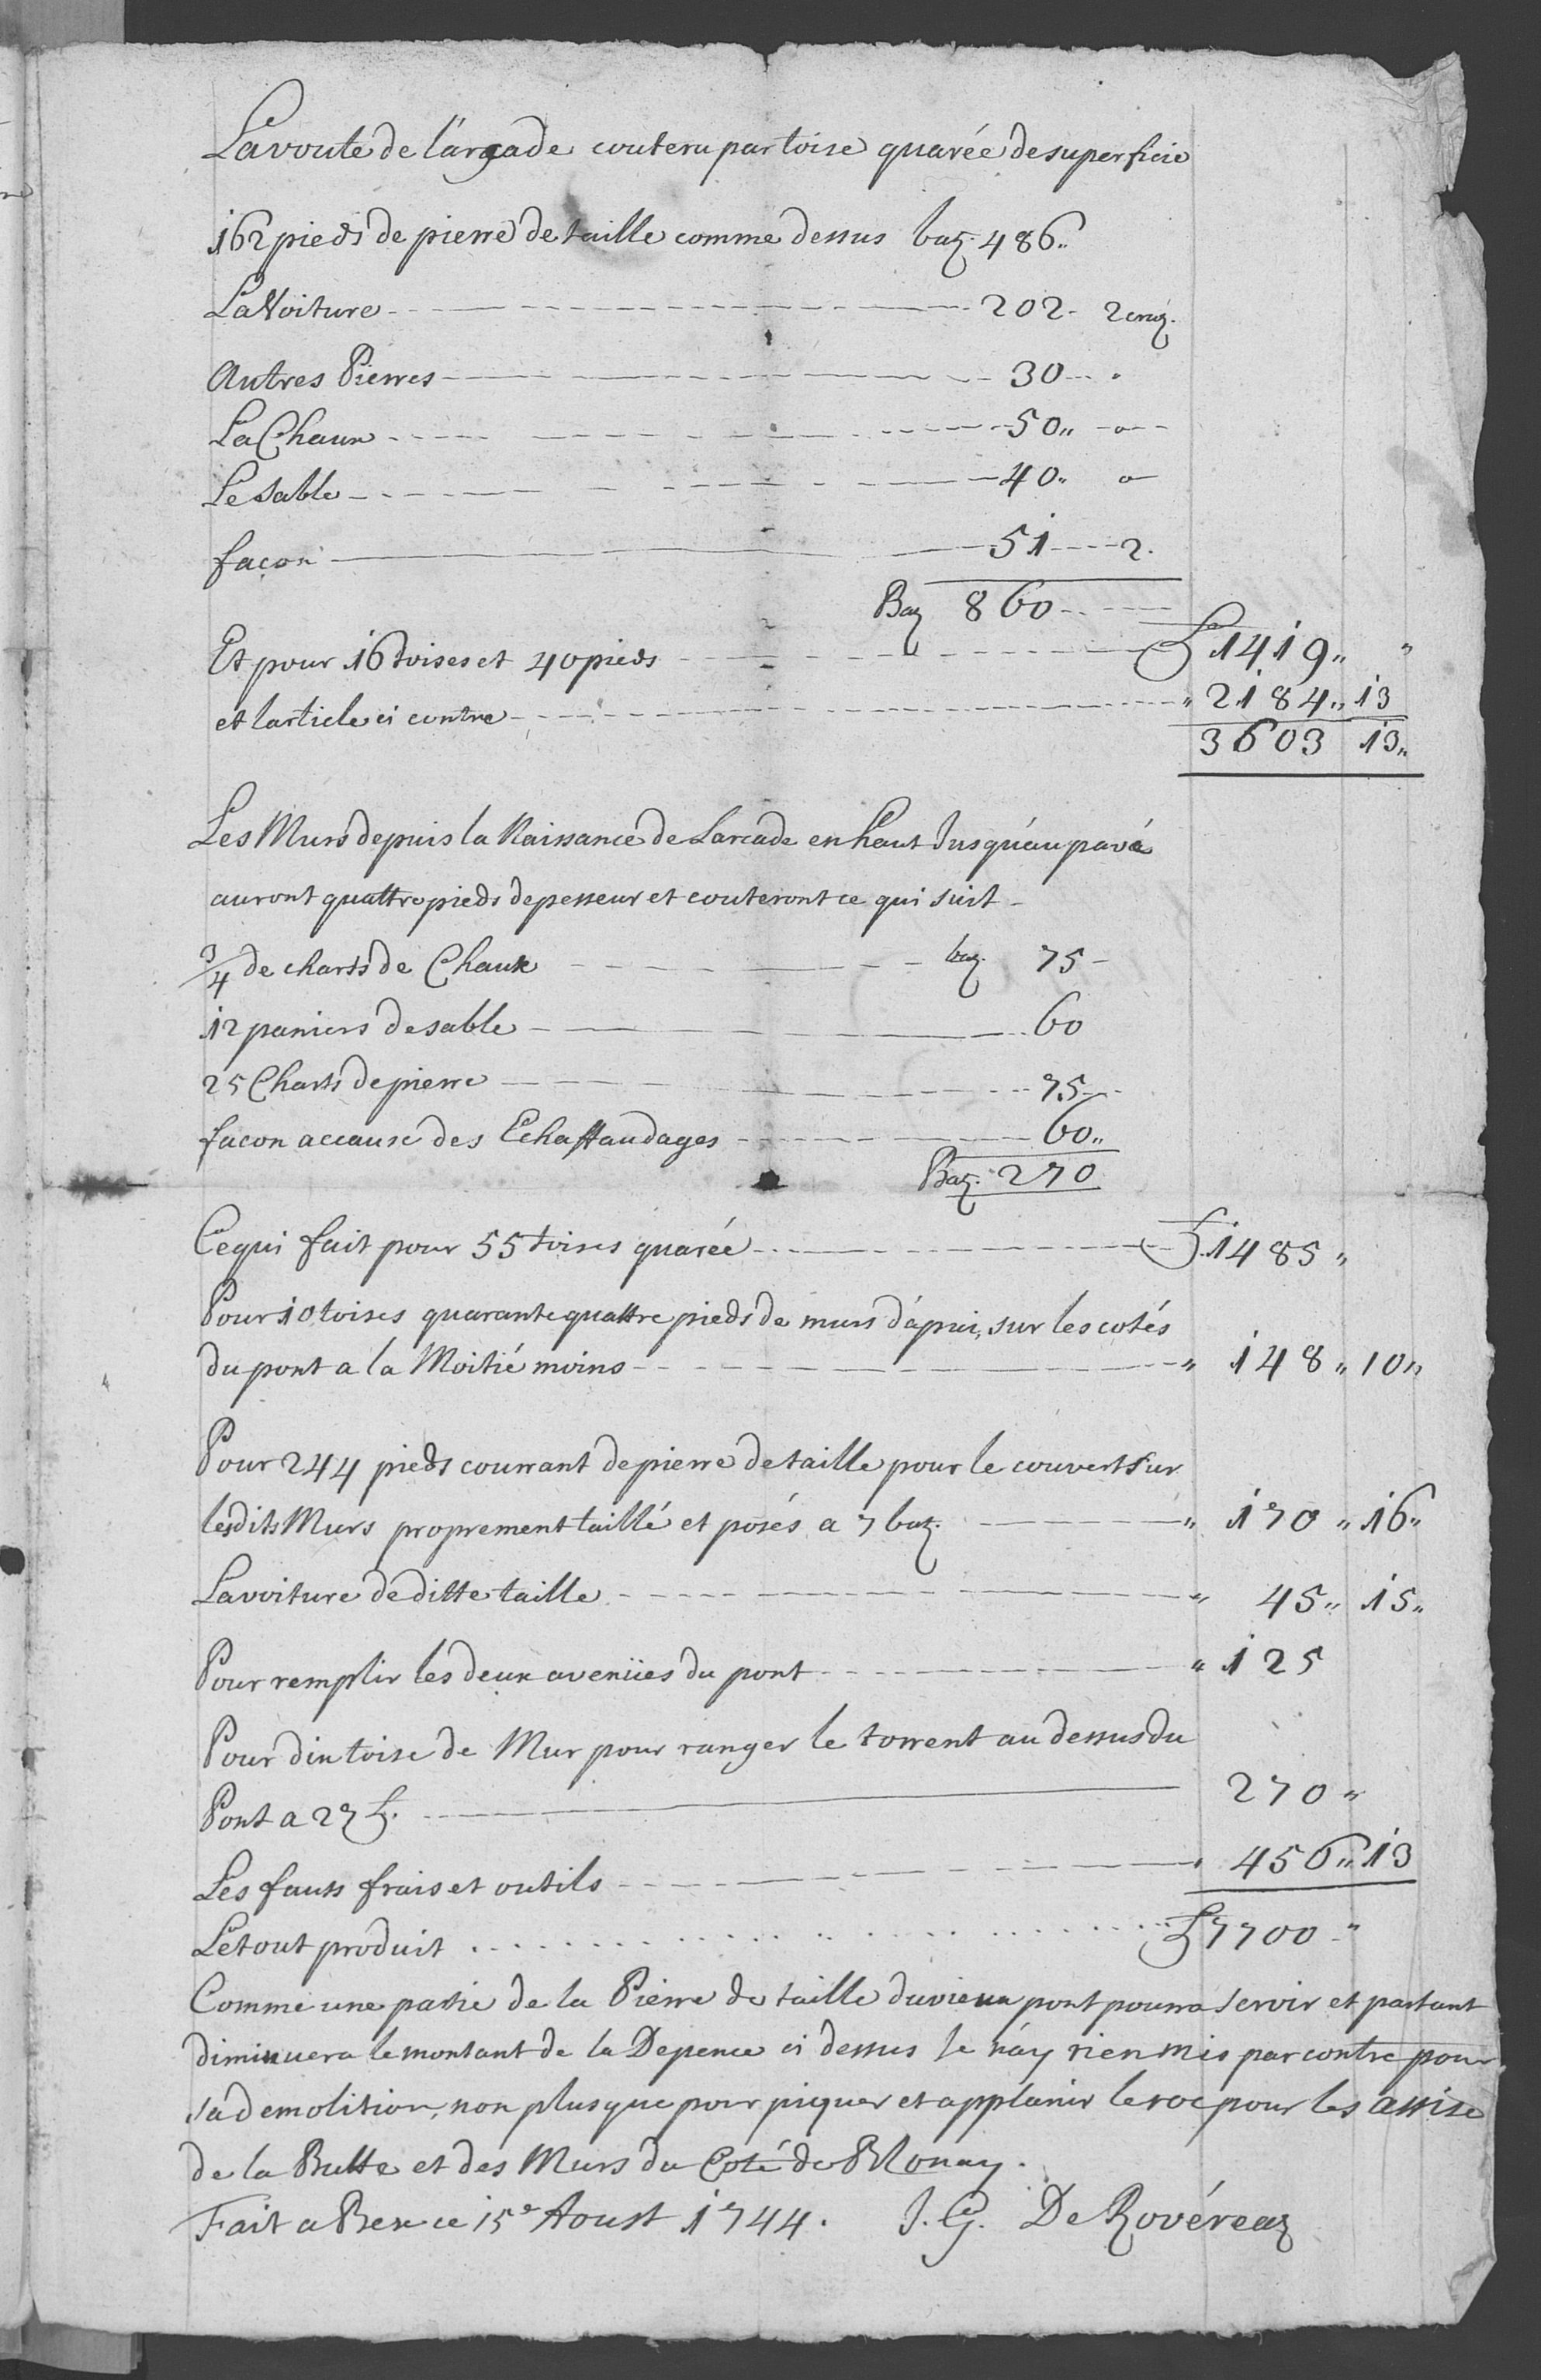 La voute de l'arcade coutera par toise quarée de superficie
162 pieds de pierre de taille comme dessus baz. 486"
La Voiture 202. 2 cruz.
Autres Pierres 30
La Chaux 50" o
Le Sable 40" o
façon 51 2.
Baz 860
Et pour 16 toises et 40 pieds £ 1419" "
et larticle ci contre " 2184" 13
3603 13"
Les Murs depuis la Naissance de Larcade en haut Jusqu'au pavé
auront quattre pieds depesseur et couteront ce qui suit
3/4 de charts de Chaux baz. 75
12 paniers de sable 60
25 Charts de pierre 75
facon accause des Echaffaudages 60"
Baz. 270
Ce qui fait pour 55 toises quarée £ 1485"
Pour 10 toises quarante quattre pieds de murs d'apui, sur les cotés
du pont a la Moitié moins " 148" 10"
Pour 244 pieds courrant de pierre de taille pour le couvert sur
lesdits Murs proprement taillé et posés a 7 baz. " 170" 16"
La voiture de ditte taille " 45" 15"
Pour remplir les deux avenües du pont " 125
Pour dix toise de Mur pour ranger le torrent au dessus du
Pont a 27 £. 270"
Les faux frais et outils " 456" 13
Le tout produit £ 7700 "
Comme une partie de la Pierre de taille du vieux pont pourra servir et partant
diminuera le montant de la Depence ci dessus Je n'ay rien mis par contre pour
sa demolition, non plus que pour piquer et applanir le roc pour les assise
de la Butte et des Murs du Coté de Blonay.
Fait a Bex ce 15e Aoust 1744. J. G. De Rovéreaz